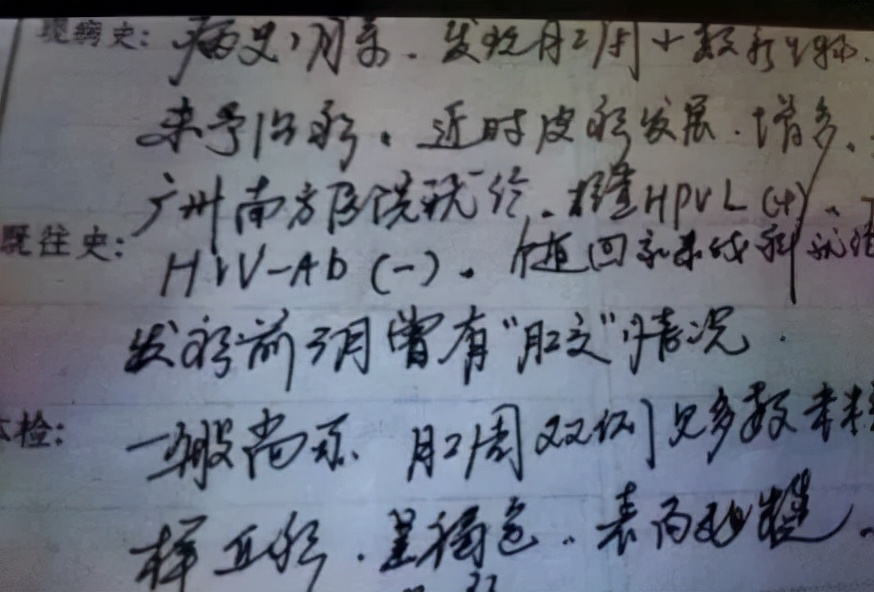 现病史: 病史3月余. 发现肛周十数新生物.
未予治疗。近时皮疹发展.增多.
广州南方医院就诊.检查HPVL(+).
既往史: HIV-Ab(-)。随回家来我科就诊
发疹前3月曾有"肛交"情况.
体检: 一般尚可. 肛周双侧见多数米粒
样丘疹.呈褐色.表面粗糙.